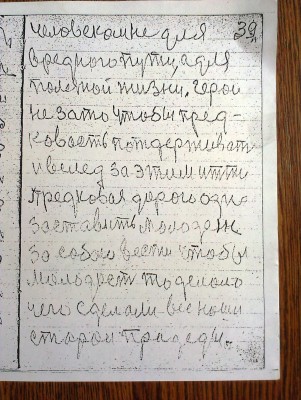 человеком не для
39
вредного пути, а для
полезной жизни. Герои
не зато чтобы пред-
ковасть подерживать
и вслед за этим итти
предковая дорога
заставить молодеж
за собою вести чтобы
молодость то делала
чего сделали все наши
старои прадеды.